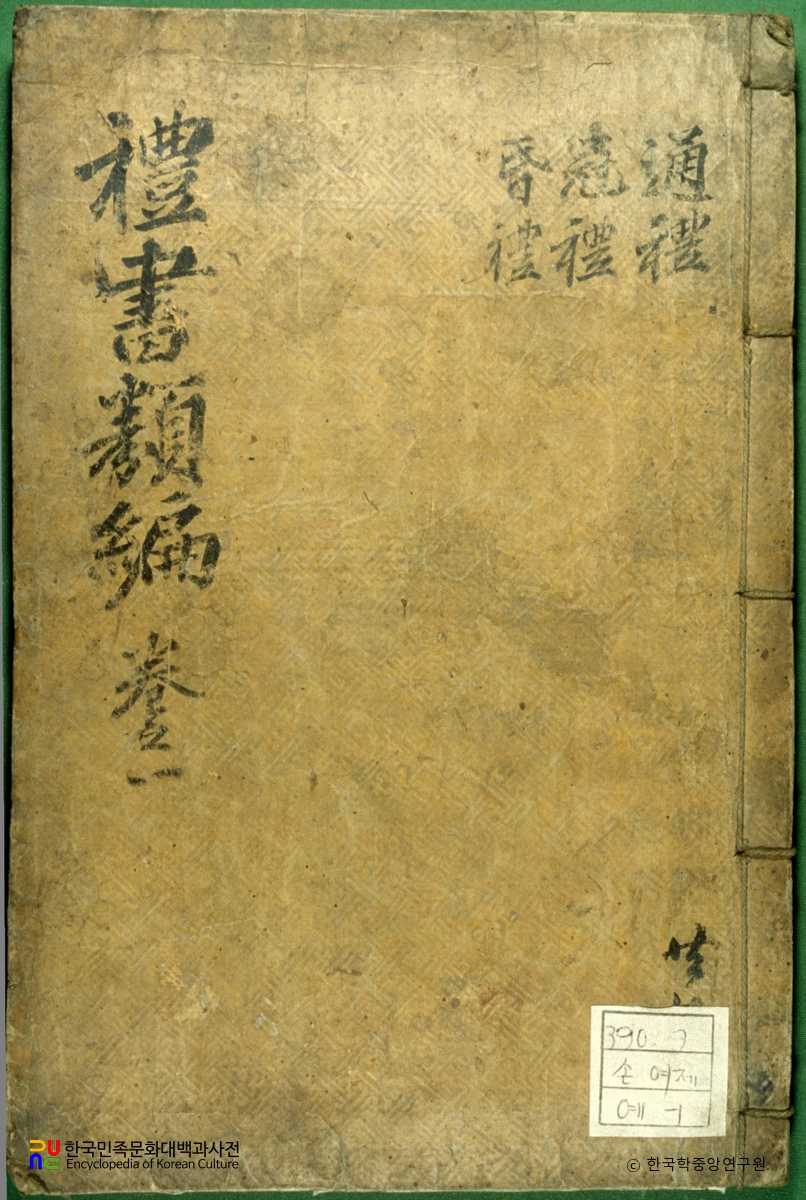 通禮
冠禮
昏禮
禮書類編 卷之一
390.
손 여제
예 -1
한국민족문화대백과사전
Encyclopedia of Korean Culture
ⓒ 한국학중앙연구원